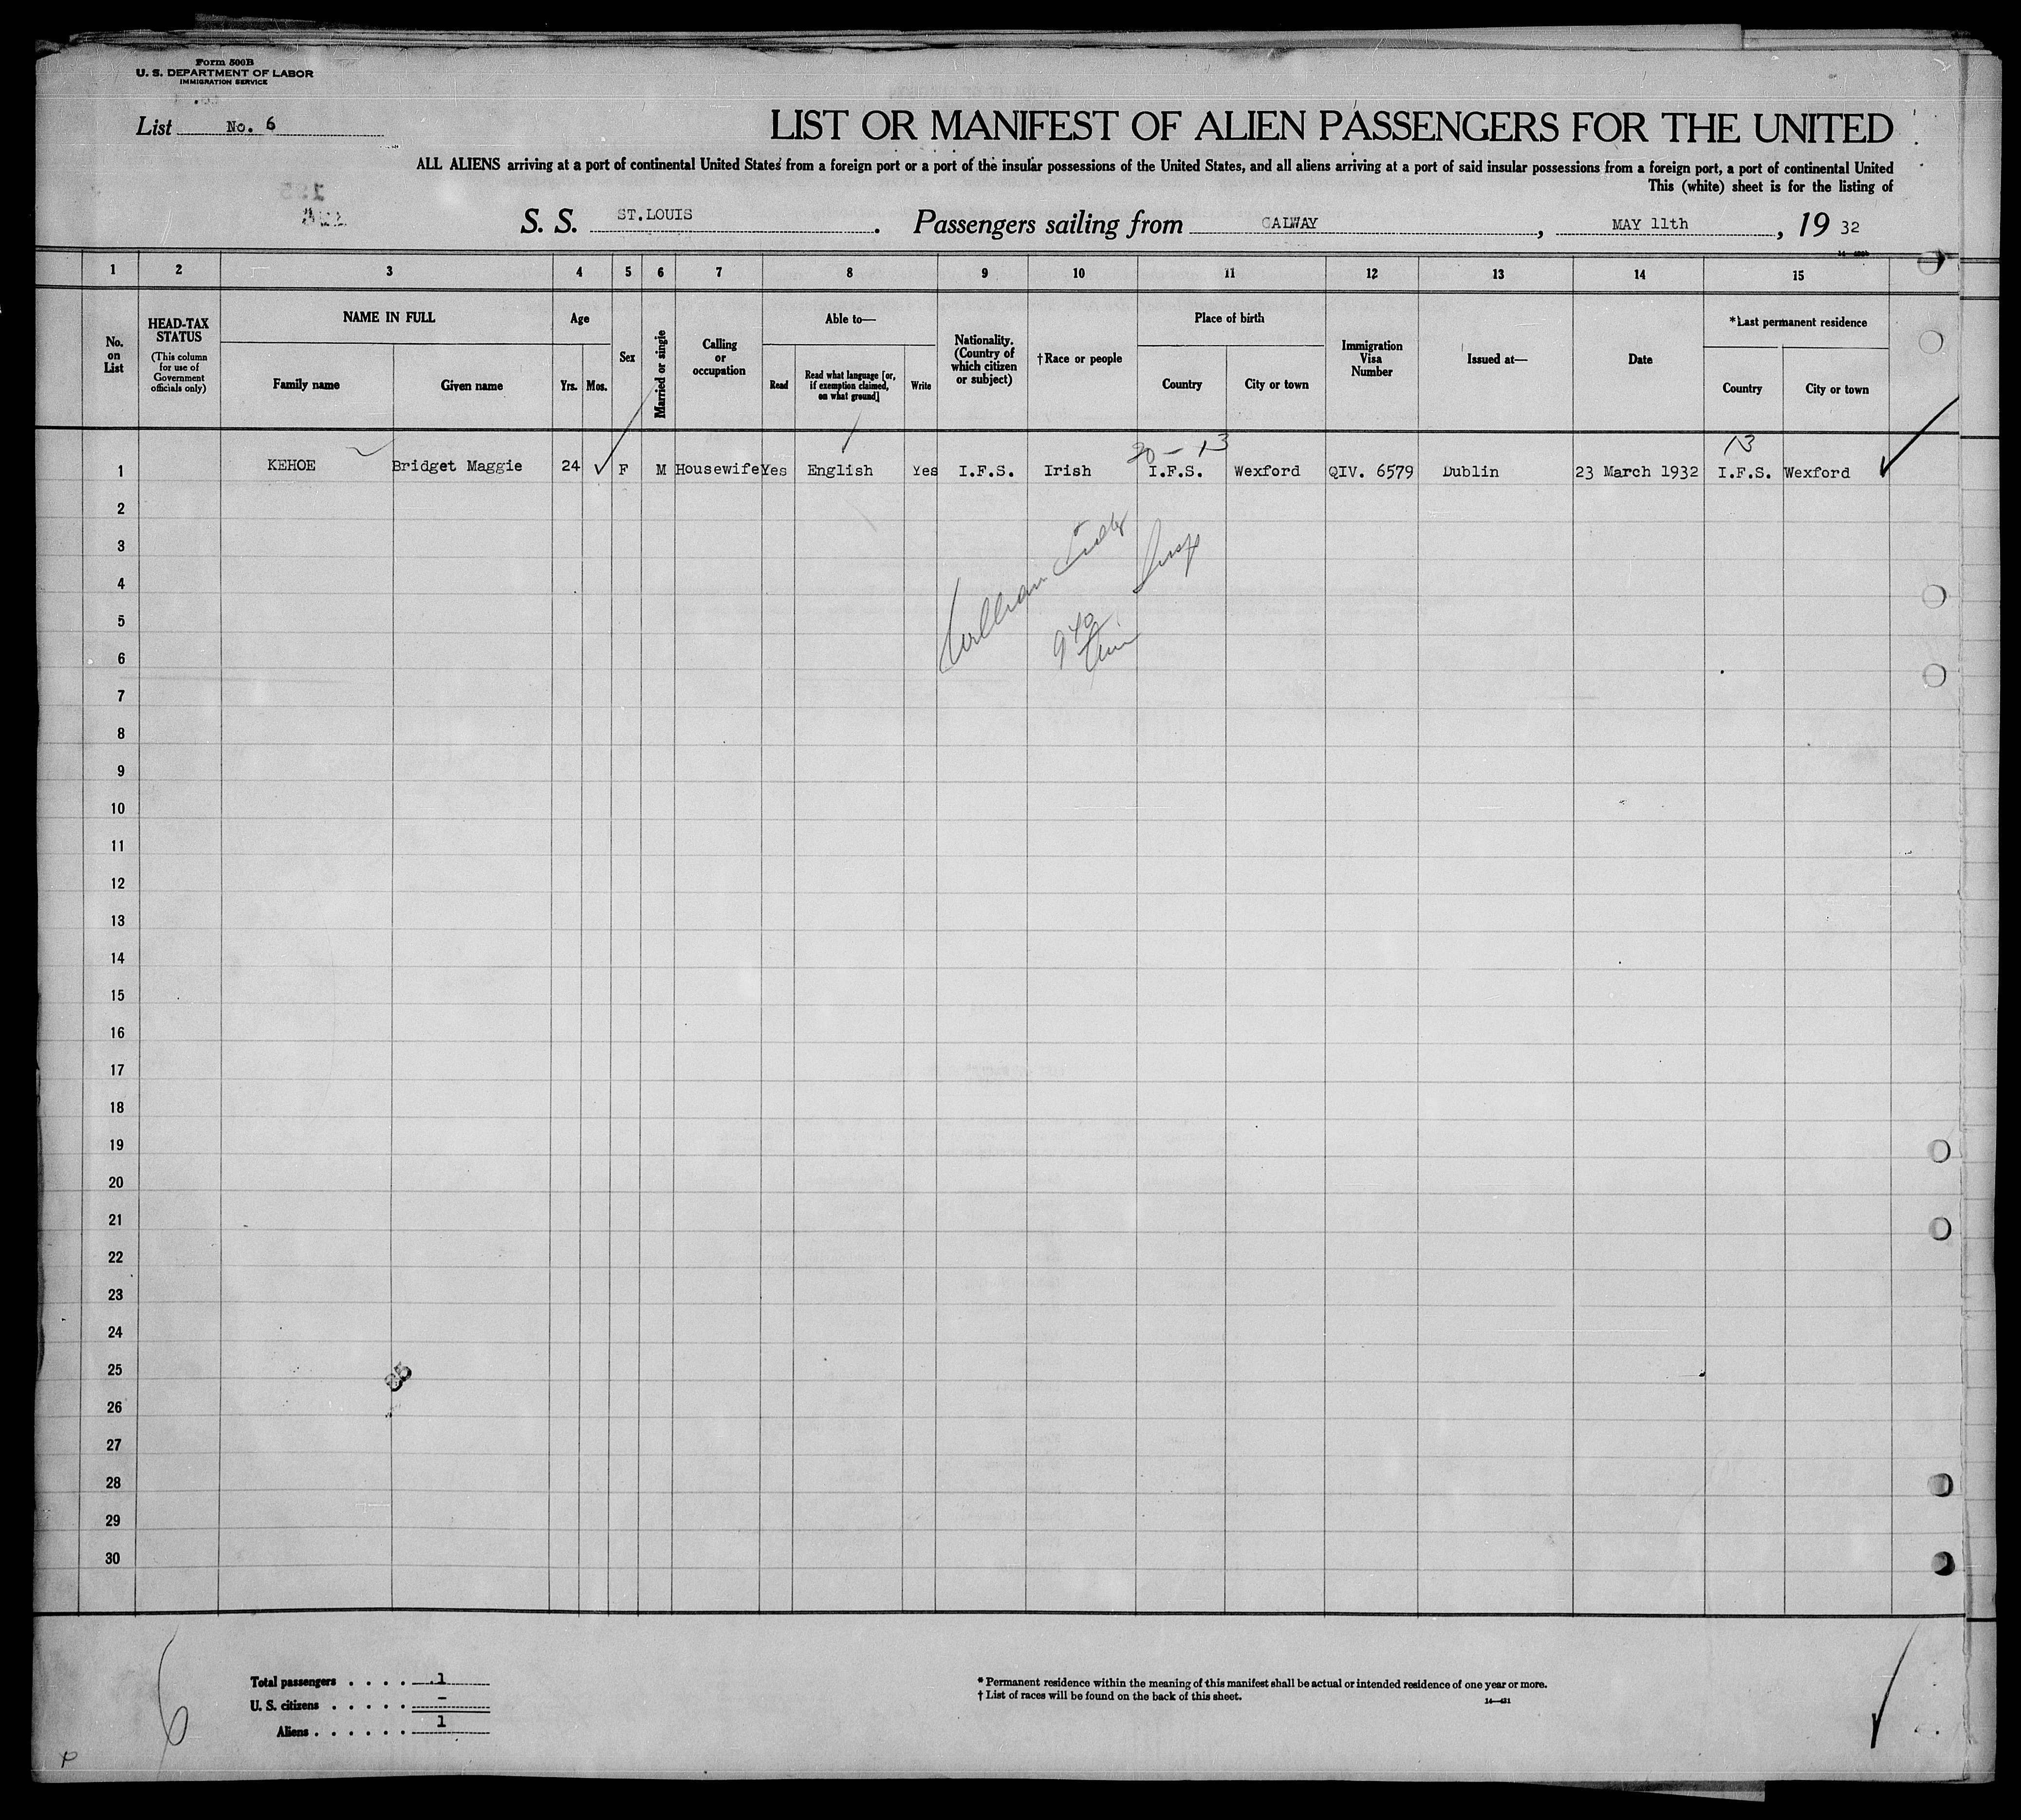 Form 500B
U. S. DEPARTMENT OF LABOR
IMMIGRATION SERVICE
List No. 6
LIST OR MANIFEST OF ALIEN PASSENGERS FOR THE UNITED
ALL ALIENS arriving at a port of continental United States from a foreign port or a port of the insular possessions of the United States, and all aliens arriving at a port of said insular possessions from a foreign port, a port of continental United
This (white) sheet is for the listing of
S. S. ST.LOUIS . Passengers sailing from GALWAY , MAY 11th , 19 32
1 2 3 4 5 6 7 8 9 10 11 12 13 14 15
No. on List
HEAD-TAX STATUS
(This column for use of Government officials only)
NAME IN FULL
Family name Given name
Age
Yrs. Mos.
Sex
Married or single
Calling or occupation
Able to—
Read
Read what language [or, if exemption claimed, on what ground]
Write
Nationality. (Country of which citizen or subject)
†Race or people
Place of birth
Country City or town
Immigration Visa Number
Issued at—
Date
*Last permanent residence
Country City or town
13
1 KEHOE Bridget Maggie 24 F M Housewife Yes English Yes I.F.S. Irish I.F.S. Wexford QIV. 6579 Dublin 23 March 1932 I.F.S. Wexford
2
3
4
5
6
7
8
9
10
11
12
13
14
15
16
17
18
19
20
21
22
23
24
25
26
27
28
29
30
William
Total passengers . . . . 1
U. S. citizens . . . . . -
Aliens . . . . . . 1
* Permanent residence within the meaning of this manifest shall be actual or intended residence of one year or more.
† List of races will be found on the back of this sheet.
6